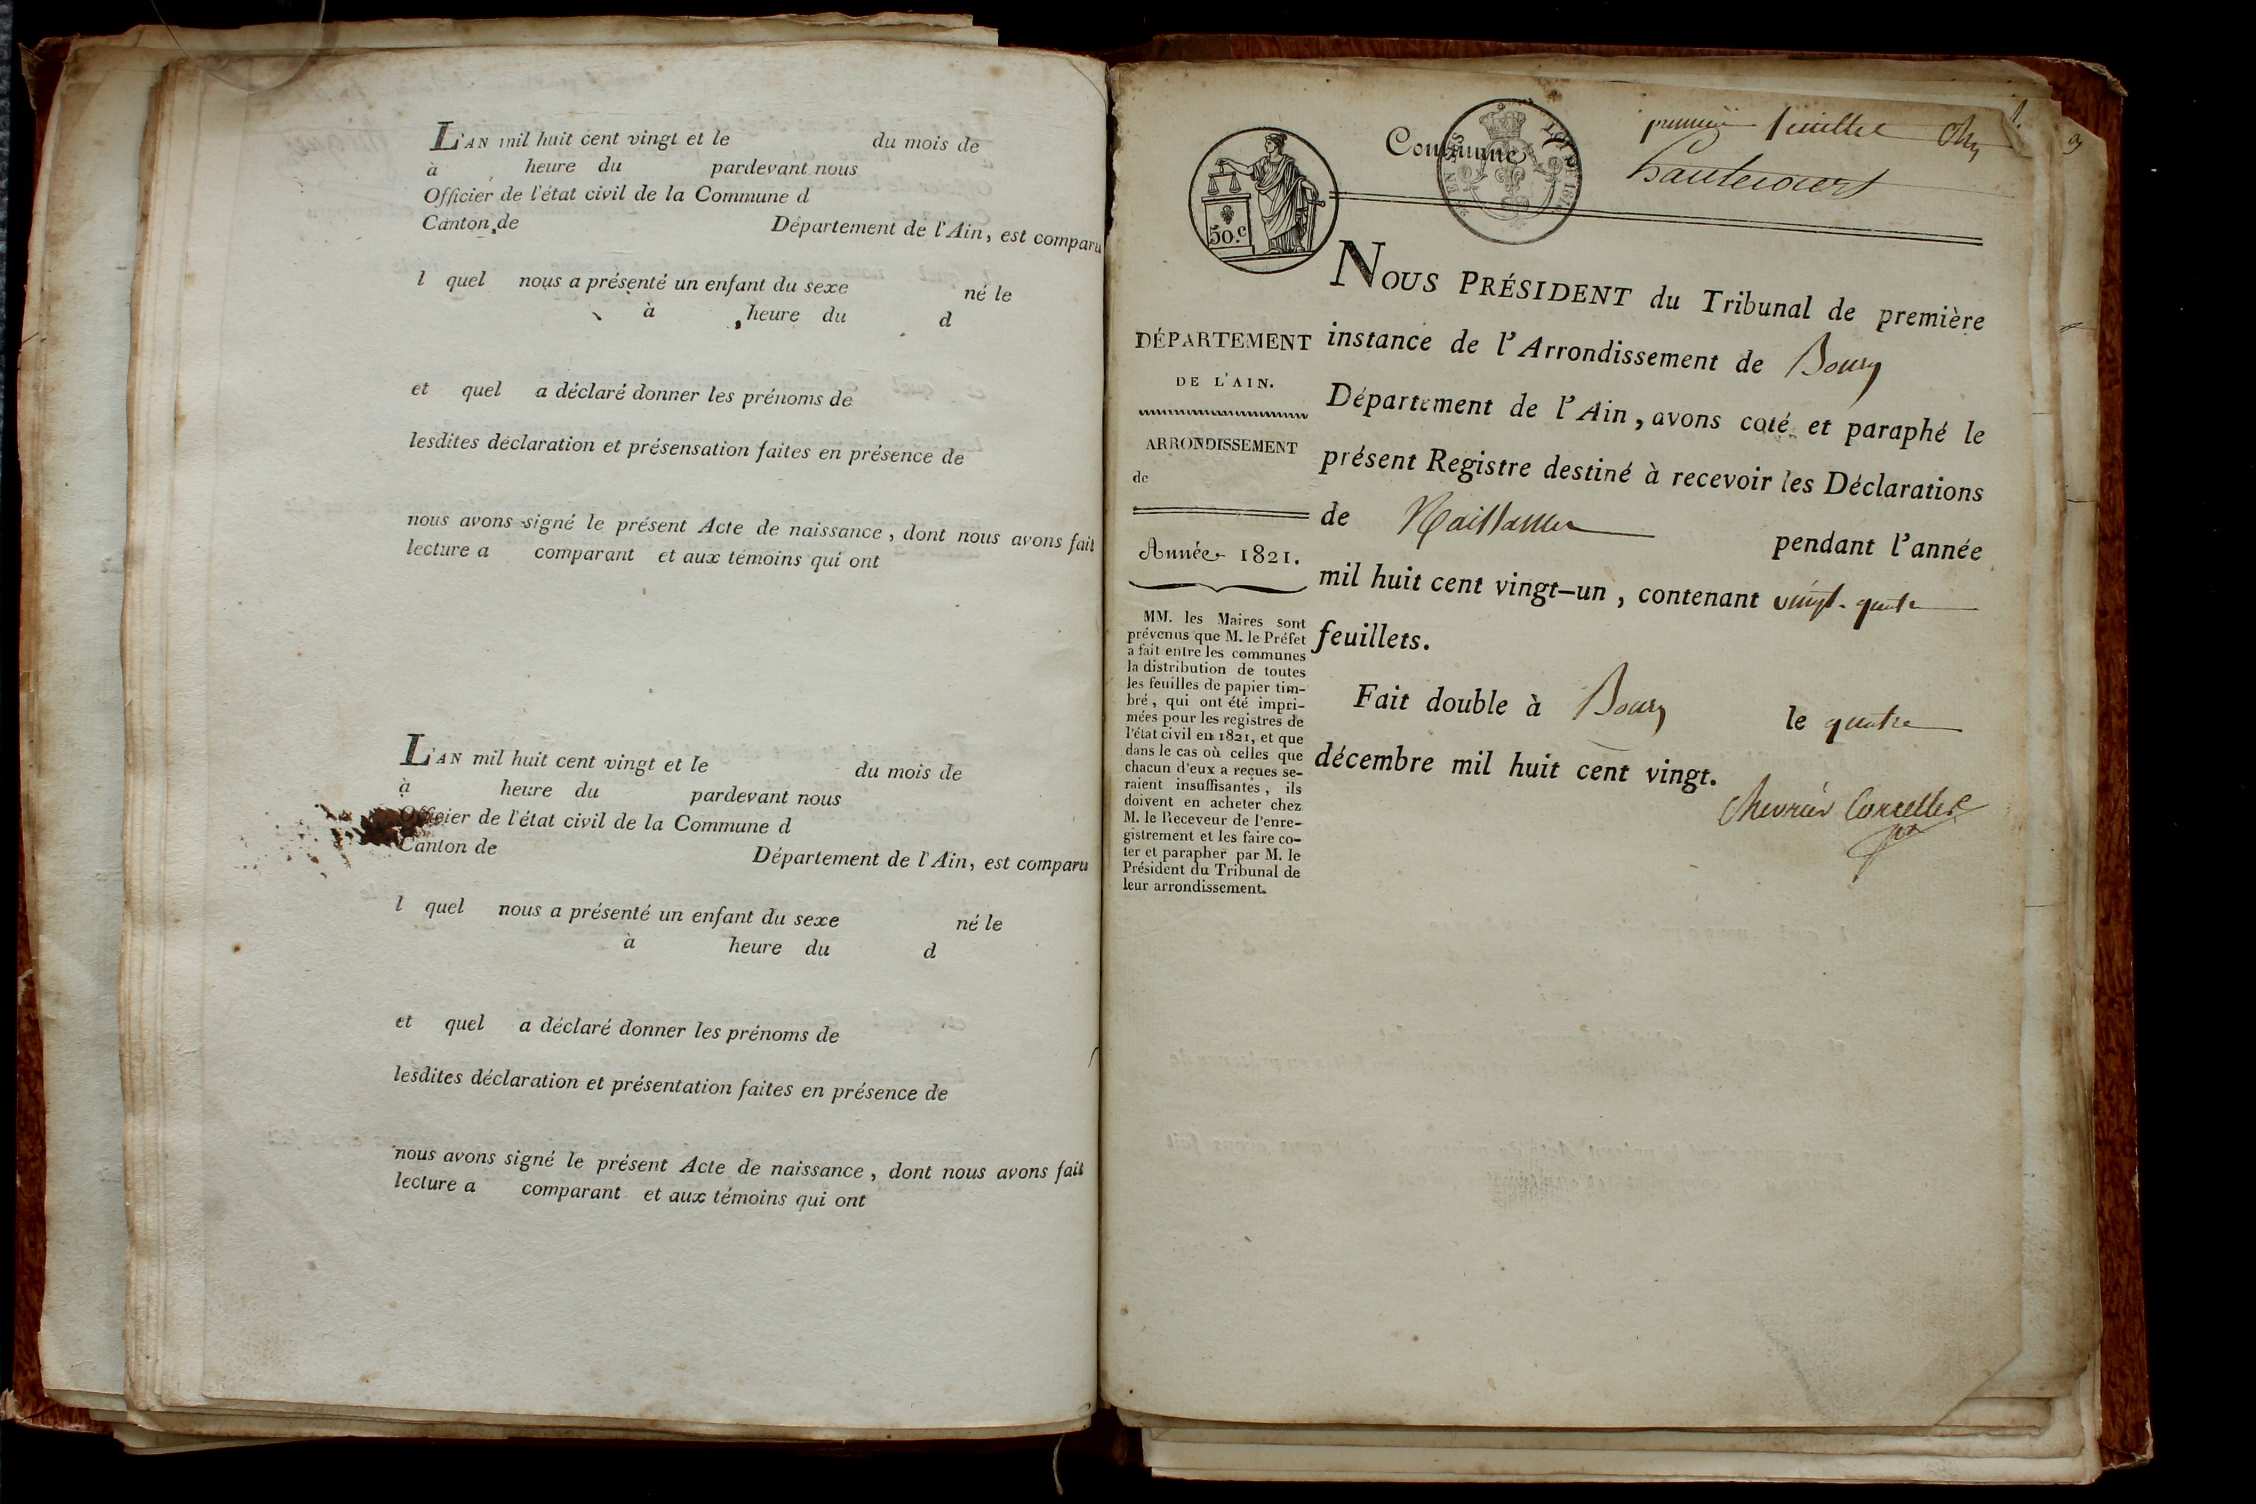 L'AN mil huit cent vingt et le du mois de
à heure du pardevant nous
Officier de l'état civil de la Commune d
Canton de Département de l'Ain, est comparu
l quel nous a présenté un enfant du sexe né le
à heure du d
et quel a déclaré donner les prénoms de
lesdites déclaration et présensation faites en présence de
nous avons signé le présent Acte de naissance, dont nous avons fait
lecture a comparant et aux témoins qui ont
L'AN mil huit cent vingt et le du mois de
à heure du pardevant nous
Officier de l'état civil de la Commune d
Canton de Département de l'Ain, est comparu
l quel nous a présenté un enfant du sexe né le
à heure du d
et quel a déclaré donner les prénoms de
lesdites déclaration et présentation faites en présence de
nous avons signé le présent Acte de naissance, dont nous avons fait
lecture a comparant et aux témoins qui ont
premier feuillet
Commune hautecourt
50.c
NOUS PRÉSIDENT du Tribunal de première
instance de l'Arrondissement de Bourg
Département de l'Ain, avons coté et paraphé le
présent Registre destiné à recevoir les Déclarations
de Naissance pendant l'année
mil huit cent vingt-un, contenant vingt-quatre
feuillets.
Fait double à Bourg le quatre
décembre mil huit cent vingt.
Chevrier Corcelles
DÉPARTEMENT
DE L'AIN.
ARRONDISSEMENT
de
Année 1821.
MM. les Maires sont
prévenus que M. le Préfet
a fait entre les communes
la distribution de toutes
les feuilles de papier tim-
bré, qui ont été impri-
mées pour les registres de
l'état civil en 1821, et que
dans le cas où celles que
chacun d'eux a reçues se-
raient insuffisantes, ils
doivent en acheter chez
M. le Receveur de l'enre-
gistrement et les faire co-
ter et parapher par M. le
Président du Tribunal de
leur arrondissement.